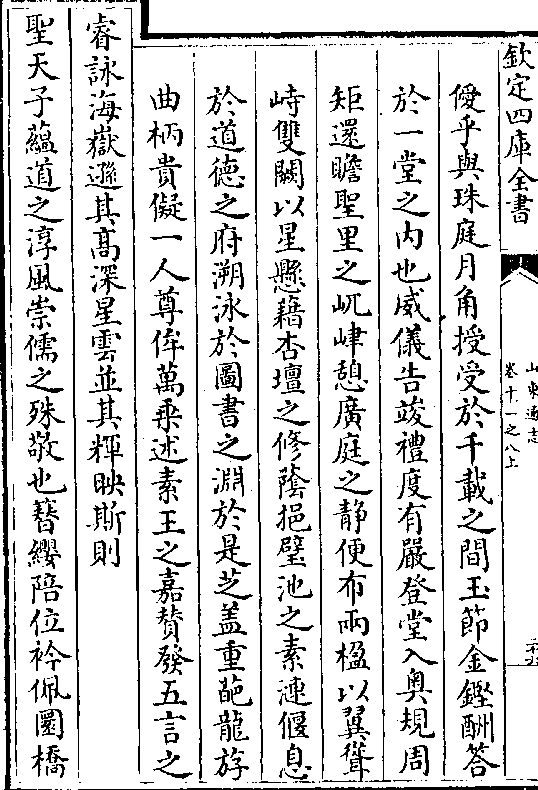 欽定四庫全書
山東通志
卷十一之八上
僾乎與珠庭月角授受於千載之間玉節金鏗酬答
於一堂之内也威儀告竣禮度有嚴登堂入奥規周
矩還瞻聖里之屼峍憩廣庭之静便布兩楹以翼聳
峙雙闕以星懸藉杏壇之修蔭挹璧池之素漣偃息
於道德之府溯泳於圖書之淵於是芝盖重葩龍斿
曲柄貴儗一人尊侔萬乗述素王之嘉賛發五言之
睿詠海嶽遜其髙深星雲並其輝映斯則
聖天子蘊道之淳風崇儒之殊敬也簪纓陪位衿佩圜橋